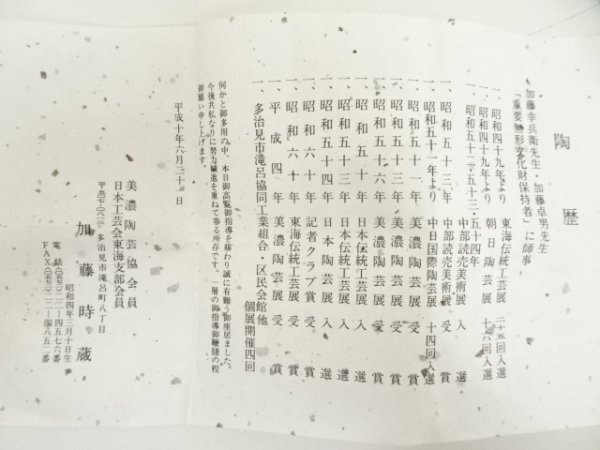 陶歴
加藤幸兵衛先生・加藤卓男先生
「重要無形文化財保持者」に師事
一、昭和四十九年より 東海伝統工芸展 二十五回入選
一、昭和四十九年より 朝日陶芸展 十六回入選
一、昭和五十二年・五十三・五十四年 中部読売美術展 入選
一、昭和五十三年 中部読売美術展 受賞
一、昭和五十一年より 中日国際陶芸展 十四回入選
一、昭和五十一年 美濃陶芸展 受賞
一、昭和五十三年 美濃陶芸展 受賞
一、昭和五十六年 美濃陶芸展 受賞
一、昭和五十年 日本伝統工芸展 入選
一、昭和五十三年 日本伝統工芸展 入選
一、昭和五十四年 日本陶芸展 入選
一、昭和六十年 記者クラブ賞 受賞
一、昭和六十年 東海伝統工芸展 受賞
一、平成四年 美濃陶芸展 受賞
一、多治見市滝呂協同工業組合・区民会館他 個展開催四回
何かと御多用の中、本日御高覧御指導を賜わり誠に有難う御座居ました。
今後共私なりに努力精進を重ねて参る所存です。一層の御指導御鞭撻の程
御願い申し上げます。
平成十年六月三十一日
美濃陶芸協会員
日本工芸会東海支部会員
多治見市滝呂町八丁目
加藤時蔵
昭和四年三月十日生
電話
FAX